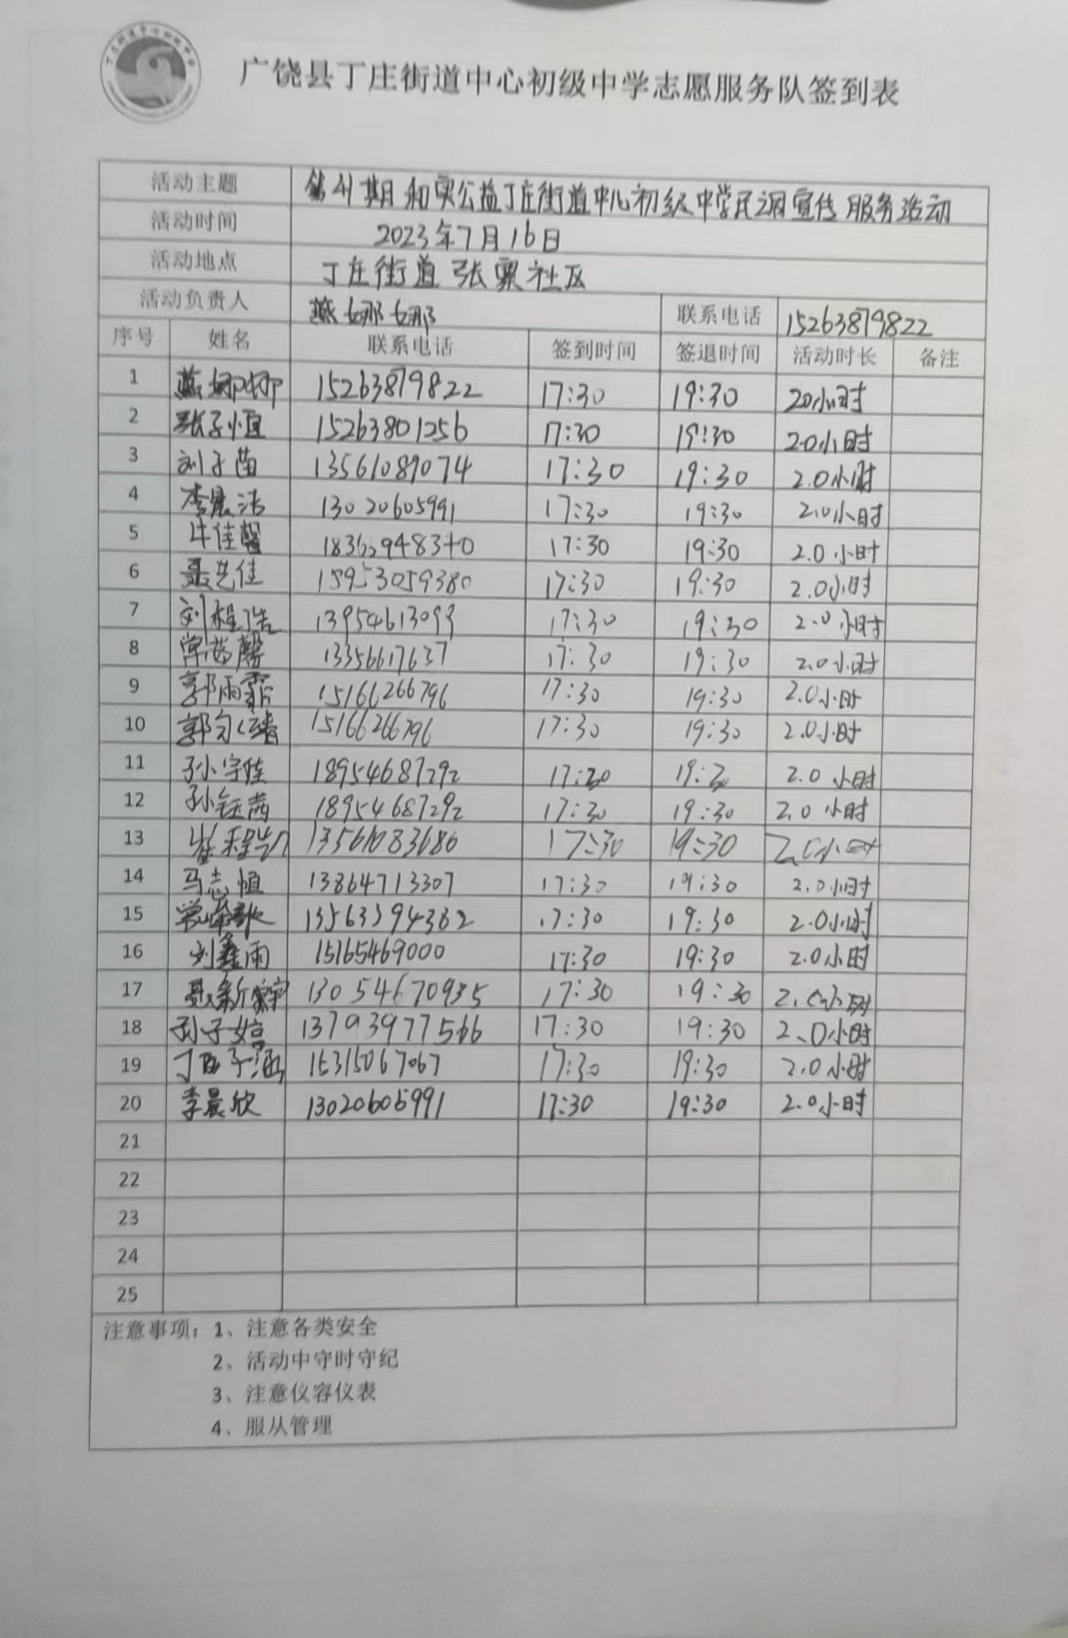 广饶县丁庄街道中心初级中学志愿服务队签到表
活动主题 期和实公益丁庄街道中心初级中学民调宣传服务活动
活动时间 2023年7月16日
活动地点 丁庄街道张寨社区
活动负责人 燕娜娜 联系电话 15263879822
序号 姓名 联系电话 签到时间 签退时间 活动时长 备注
1 燕娜娜 15263879822 17:30 19:30 2.0小时
2 张子恒 15263801256 17:30 19:30 2.0小时
3 刘子菡 13561089074 17:30 19:30 2.0小时
4 李晨洁 13020605991 17:30 19:30 2.0小时
5 牛佳馨 17:30 19:30 2.0小时
6 聂艺佳 15953059380 17:30 19:30 2.0小时
7 刘程浩 17:30 19:30 2.0小时
8 13356617637 17:30 19:30 2.0小时
9 郭雨霏 15166266796 17:30 19:30 2.0小时
10 15166266796 17:30 19:30 2.0小时
11 18954687292 17:30 2.0小时
12 孙钰茜 18954687292 17:30 19:30 2.0小时
13 崔程凯 13561083686 17:30 19:30 2.0小时
14 马志恒 13864713307 17:30 19:30 2.0小时
15 13563394382 17:30 19:30 2.0小时
16 刘鑫雨 15165469000 17:30 19:30 2.0小时
17 13054670935 17:30 19:30 2.0小时
18 孙子婷 13793977566 17:30 19:30 2.0小时
19 15315067067 17:30 19:30 2.0小时
20 李晨欣 13020605991 17:30 19:30 2.0小时
21
22
23
24
25
注意事项：1、注意各类安全
2、活动中守时守纪
3、注意仪容仪表
4、服从管理